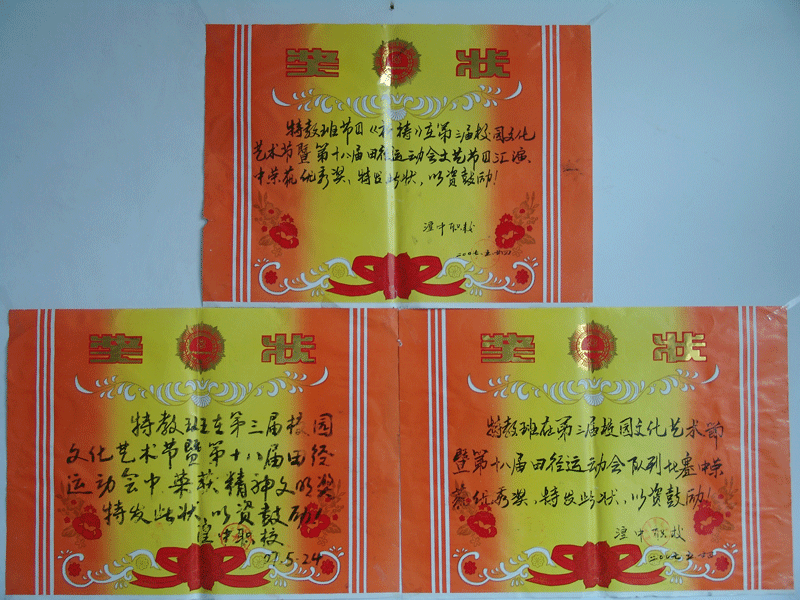 奖 状
特教班节目《祈祷》在第三届校园文化
艺术节暨第十八届田径运动会文艺节目汇演
中荣获优秀奖、特发此状，以资鼓励！
湟中职校
奖 状
特教班在第三届校园
文化艺术节暨第十八届田径
运动会中荣获精神文明奖
特发此状、以资鼓励！
湟中职校
07.5.24
奖 状
特教班在第三届校园文化艺术节
暨第十八届田径运动会队列比赛中荣
获优秀奖，特发此状、以资鼓励！
湟中职校